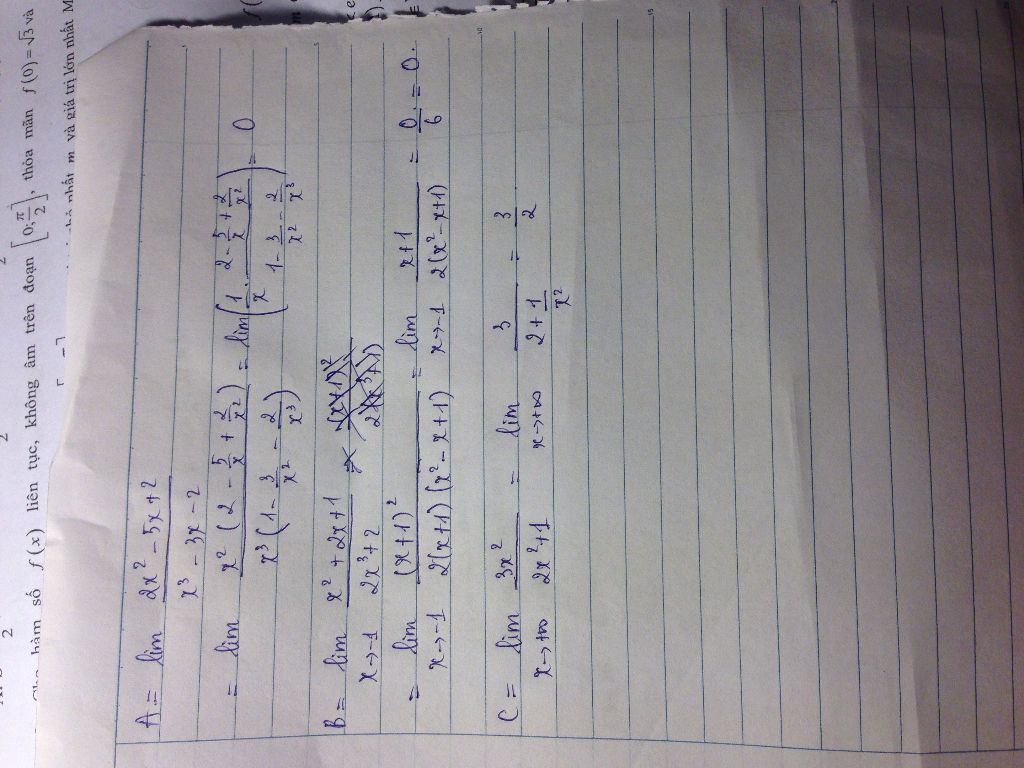 f(x) liên tục, không âm trên đoạn [0; π/2], thỏa mãn f(0) = √3 và
nhất m và giá trị lớn nhất M
A = lim (2x² - 5x + 2)/(x³ - 3x - 2)
= lim x²(2 - 5/x + 2/x²)/x³(1 - 3/x² - 2/x³) = lim (1/x · (2 - 5/x + 2/x²)/(1 - 3/x² - 2/x³)) = 0
B = lim x→-1 (x² + 2x + 1)/(2x³ + 2)
= lim x→-1 (x+1)²/2(x+1)(x² - x + 1) = lim x→-1 (x+1)/2(x² - x + 1) = 0/6 = 0.
C = lim x→+∞ 3x²/(2x² + 1) = lim x→+∞ 3/(2 + 1/x²) = 3/2